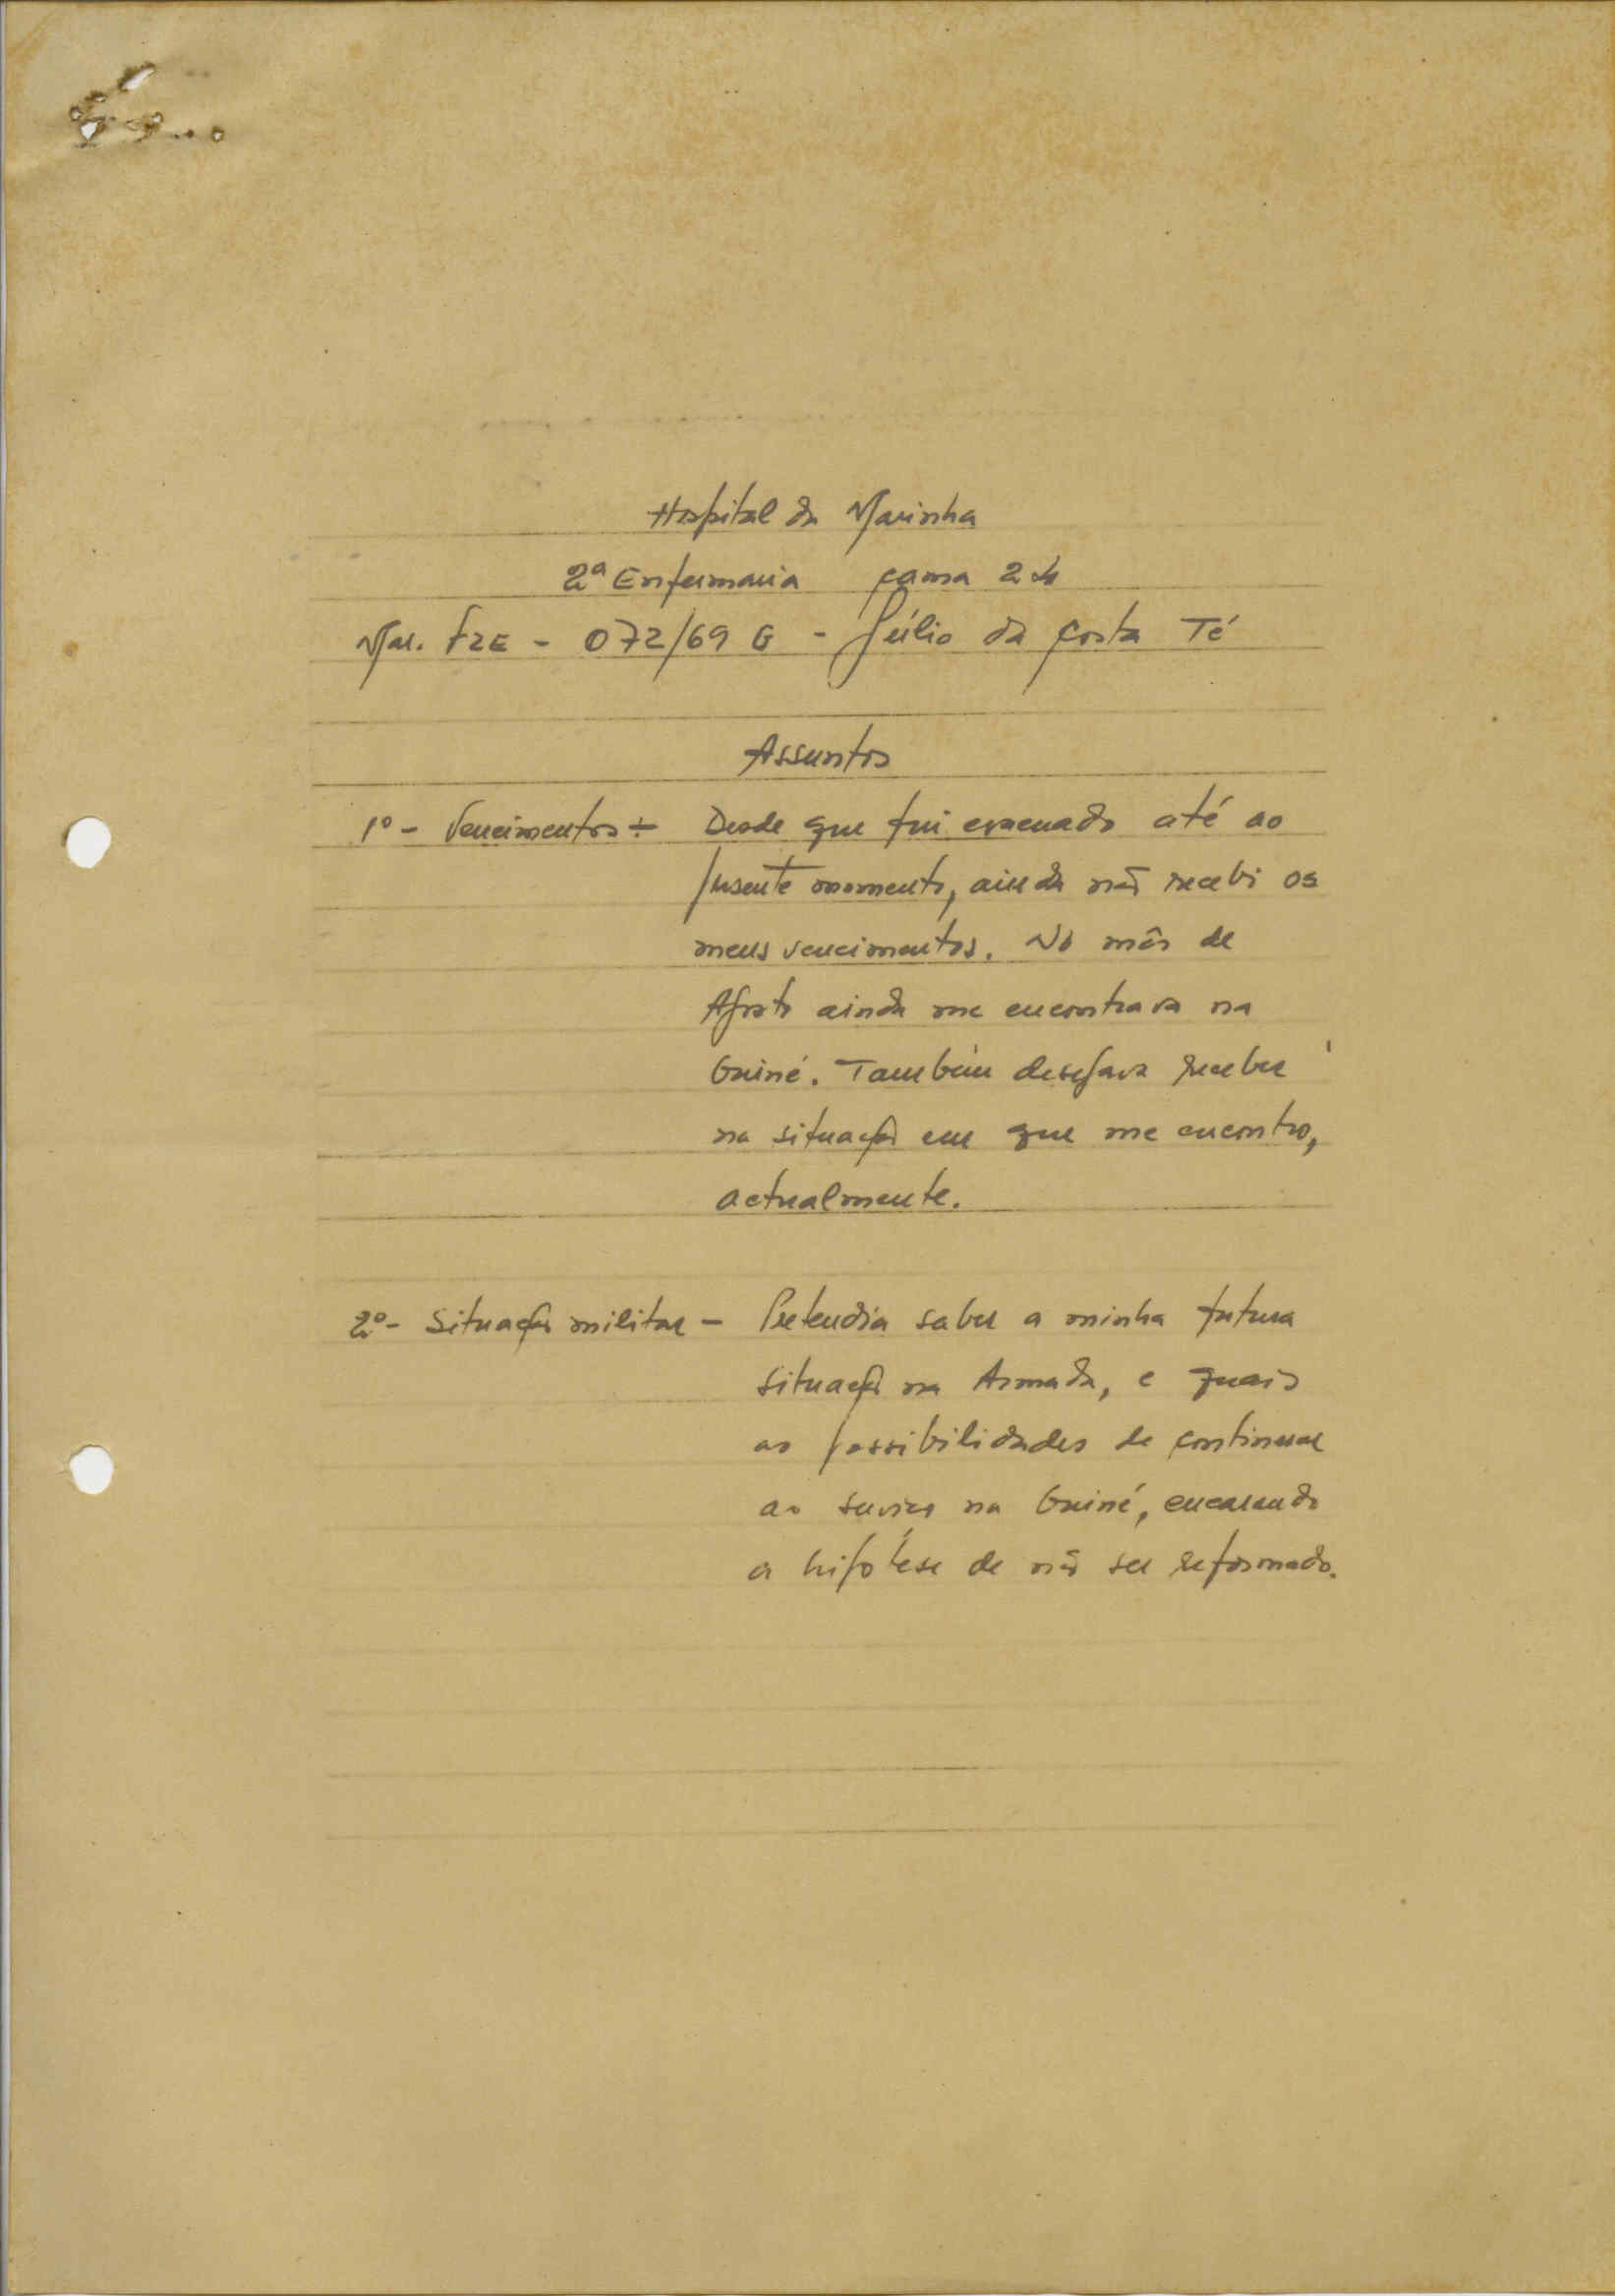 Hospital da Marinha
2ª Enfermaria cama 24
Mar. FZE - 072/69 G - Júlio da Costa Té
Assuntos
1º - Vencimentos - Desde que fui evacuado até ao
presente momento, ainda não recebi os
meus vencimentos. No mês de
Agosto ainda me encontrava na
Guiné. Também desejava receber
na situação em que me encontro,
actualmente.
2º - Situação militar - Pretendia saber a minha futura
situação na Armada, e quais
as possibilidades de continuar
ao serviço na Guiné, encarando
a hipótese de não ser reformado.